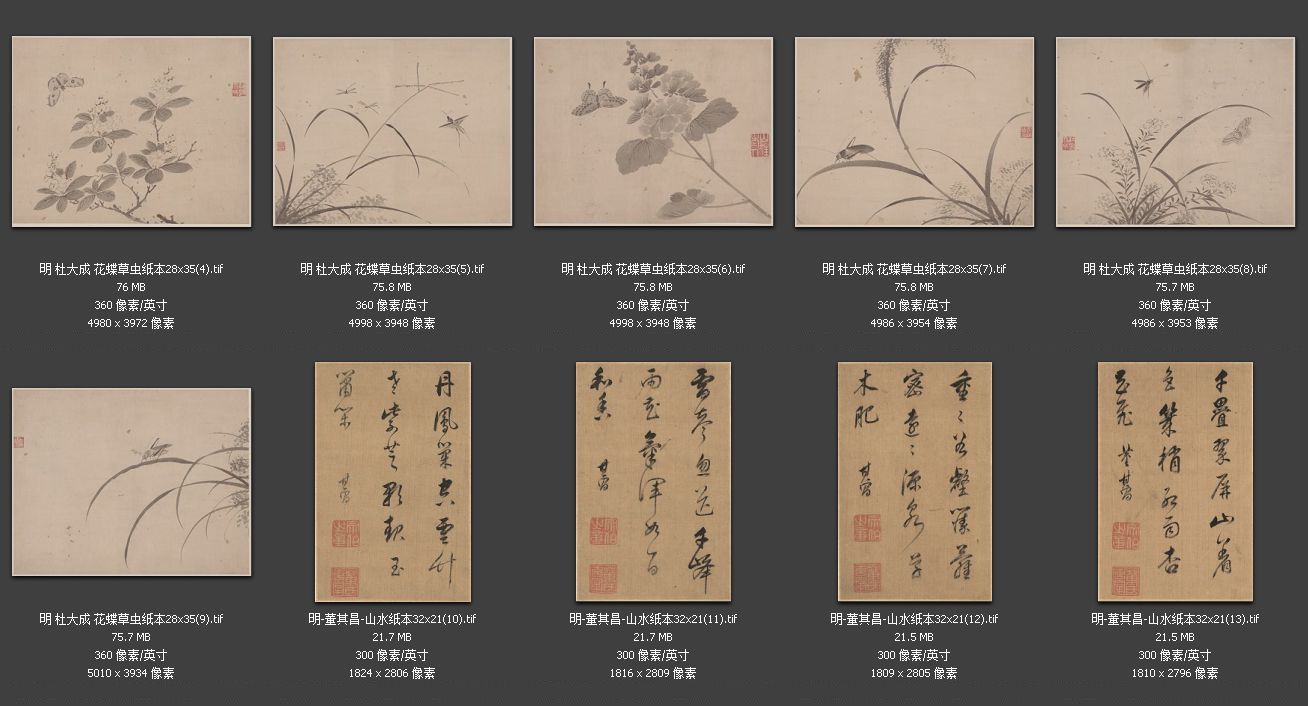 明 杜大成 花蝶草虫纸本28x35(4).tif
76 MB
360 像素/英寸
4980 x 3972 像素
明 杜大成 花蝶草虫纸本28x35(5).tif
75.8 MB
360 像素/英寸
4998 x 3948 像素
明 杜大成 花蝶草虫纸本28x35(6).tif
75.8 MB
360 像素/英寸
4998 x 3948 像素
明 杜大成 花蝶草虫纸本28x35(7).tif
75.8 MB
360 像素/英寸
4986 x 3954 像素
明 杜大成 花蝶草虫纸本28x35(8).tif
75.7 MB
360 像素/英寸
4986 x 3953 像素
明 杜大成 花蝶草虫纸本28x35(9).tif
75.7 MB
360 像素/英寸
5010 x 3934 像素
丹鳳巢空雲竹
老紫芝歌歇玉
簫
其昌
明-董其昌-山水纸本32x21(10).tif
21.7 MB
300 像素/英寸
1824 x 2806 像素
雷聲忽送千峰
雨花氣渾如百
和香
其昌
明-董其昌-山水纸本32x21(11).tif
21.7 MB
300 像素/英寸
1816 x 2809 像素
重重谷壑藤蘿
密遠遠源泉草
木肥
其昌
明-董其昌-山水纸本32x21(12).tif
21.5 MB
300 像素/英寸
1809 x 2805 像素
千疊翠屏山着
色幾梢紅雨杏
董其昌
明-董其昌-山水纸本32x21(13).tif
21.5 MB
300 像素/英寸
1810 x 2796 像素